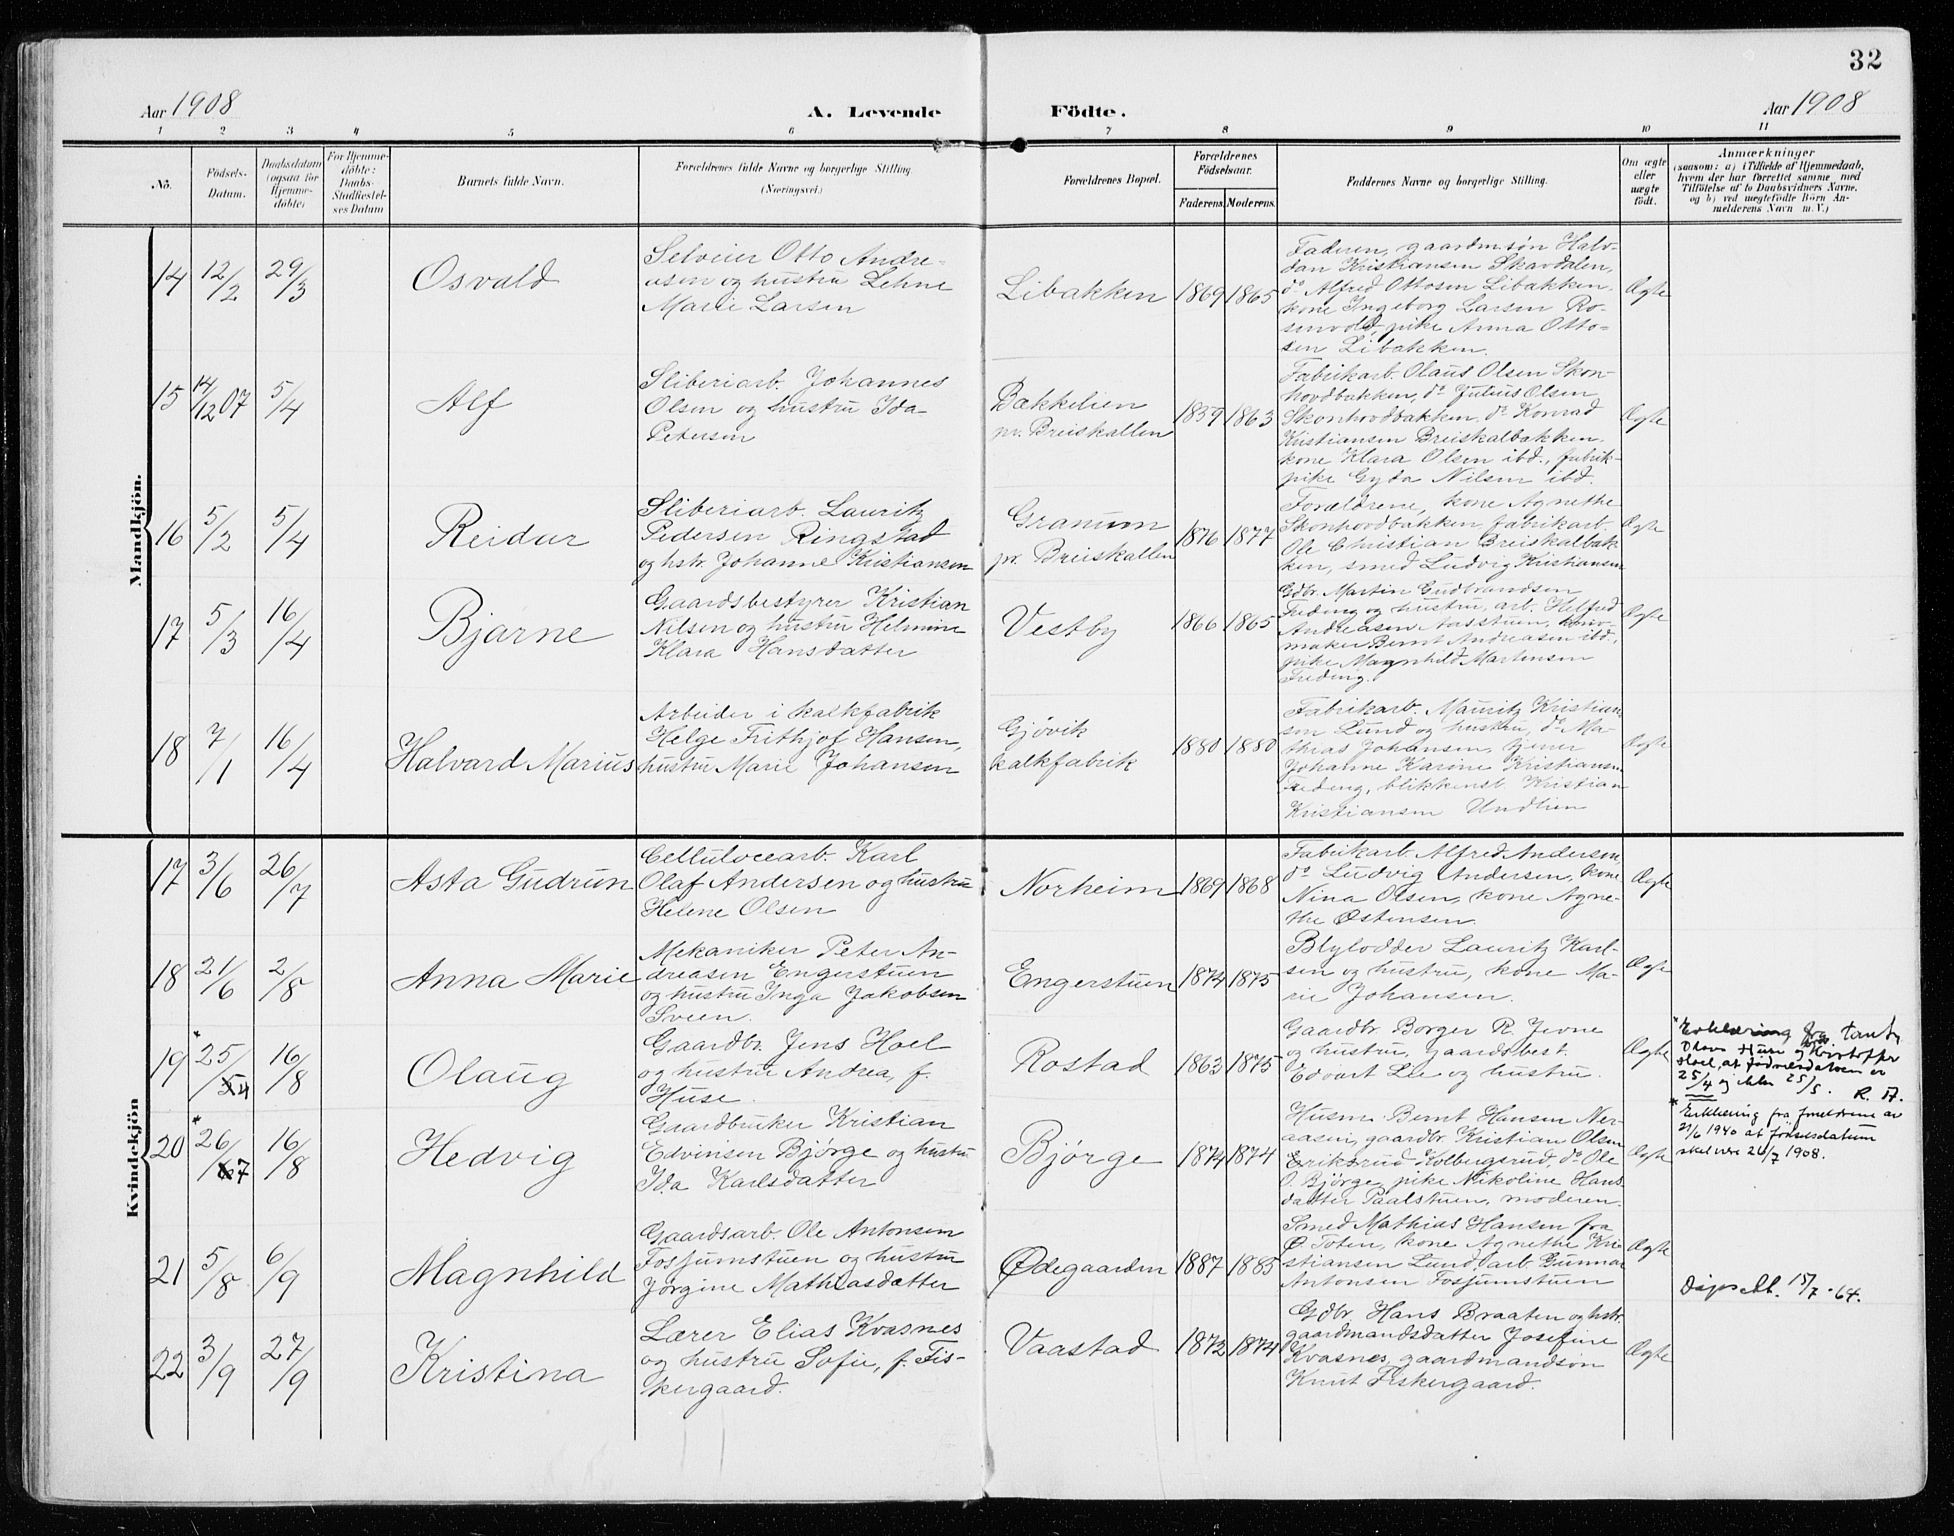 32
Aar 1908 A. Levende Födte. Aar 1908
1 2 3 4 5 6 7 8 9 10 11
No.
Födsels-
Datum.
Daabsdatum
(ogsaa for
Hjemme-
döbte)
For Hjemme-
döbte:
Daabs-
Stadfæstel-
ses Datum
Barnets fulde Navn.
Forældrenes fulde Navne og borgerlige Stilling
(Næringsvei.)
Forældrenes Bopæl.
Forældrenes
Födselsaar.
Faderens. Moderens.
Faddernes Navne og borgerlige Stilling.
Om ægte
eller
uægte
födt.
Anmærkninger
(saasom: a) i Tilfælde af Hjemmedaab,
hvem der har forrettet samme, med
Tilföielse af to Daabsvidners Navne,
og b) ved uægtefödte Börn An-
melderens Navn m. V.)
Mandkjön.
14 12/2 29/3 Osvald
Selveier Otto Andre-
asen og hustru Lehne
Marie Larsen
Libakken 1869 1865
Faderen, gaardm.søn Halv-
dan Kristiansen Skavdalen,
do Alfred Ottosen Libakken,
kone Ingeborg Larsen Ro-
senvold, pike Anna Otto-
sen Libakken.
Ægte
15 14/12 07 5/4 Alf
Sliberiarb. Johannes
Olsen og hustru Ida
Petersen
Bakkelien
pr. Breiskallen
1859 1863
Fabrikarb. Olaus Olsen Skon-
hovdbakken, do Julius Olsen
Skonhovdbakken, do Konrad
Kristiansen Breiskalbakken.
kone Klara Olsen ibd., fabrik-
pike Gyda Nilsen ibd.
Ægte
16 5/2 5/4 Reidar
Sliberiarb. Lauritz
Pedersen Ringstad
og hstr. Johanne Kristiansen
Granum
pr. Breiskallen
1876 1877
Forældrene, kone Agnethe
Skonhovdbakken, fabrikarb.
Ole Christian Breiskalbak-
ken, smed Ludvig Kristiansen
Ægte
17 5/3 16/4 Bjarne
Gaardsbestyrer Kristian
Nilsen og hustru Helmine
Klara Hansdatter
Vestby 1866 1865
Gdbr. Martin Gudbrandsen
og hustru, arb. Helfred
Andreasen Aasstuen,
maker Bernt Andreasen ibd.,
pike Magnhild Martinsen
Ægte
18 7/1 16/4 Halvard Marius
Arbeider i kalkfabrik
Helge Frithjof Hansen,
hustru Marie Johansen
Gjøvik
kalkfabrik
1880 1880
Fabrikarb. Mauritz Kristian-
sen Lund og hustru, do Ma-
thias Johansen, tjener
Johanne Karine Kristiansen
blikkensl. Kristian
Kristiansen Undlien
Ægte
Kvindekjön
17 3/6 26/7 Asta Gudrun
Cellulocearb. Karl
Olaf Andersen og hustru
Helene Olsen
Norheim 1869 1868
Fabrikarb. Alfred Andersen,
do Ludvig Andersen, kone
Nina Olsen, kone Agne-
the Østensen
Ægte
18 21/6 2/8 Anna Marie
Mekaniker Peter An-
dreasen Engerstuen
og hustru Inga Jakobsen
Sveen.
Engerstuen 1874 1875
Blylodder Lauritz Karl-
sen og hustru, kone Ma-
rie Johansen.
Ægte
19 * 25/4 16/8 Olaug
Gaardbr. Jens Hoel
og hustru Andrea, f.
Huse.
Rostad 1863 1875
Gaardbr. Borger R. Jevne
og hustru, gaardsbest.
Edvart Lie og hustru.
Ægte
* Erklæring fra tante
Huse og Kristoffer
Hoel, at fødselsdatoen er
25/4 og ikke 25/5.
20 * 26/7 16/8 Hedvig
Gaardbruker Kristian
Edvinsen Bjørge og hustru
Ida Karlsdatter
Bjørge 1874 1874
Husm. Bernt Hansen Ner-
aasen, gaardbr. Kristian Olsen
Eriksrud Kolbergsrud, do Ole
O. Bjørge, pike Nikoline Hans-
datter Paalstuen, moderen
Ægte
* Erklæring fra foreldrene av
21/6 1940 at fødselsdatum
skal være 26/7 1908.
21 5/8 6/9 Magnhild
Gaardsarb. Ole Antonsen
Fossumstuen og hustru
Jørgine Mathiasdatter
Ødegaarden 1887 1885
Smed Mathias Hansen fra
Ø. Toten, kone Agnethe Kri-
stiansen Lund, arb. Gunnar
Antonsen Fossumstuen
Ægte
Dåpsatt. 15/7-64.
22 3/9 27/9 Kristina
Lærer Elias Kvasnes
og hustru Sofie, f. Fis-
kergaard.
Vaastad 1872 1874
Gdbr. Hans Braaten og hstr.
gaardmandsdatter Josefine
Kvasnes, gaardmandsøn
Knut Fiskergaard.
Ægte